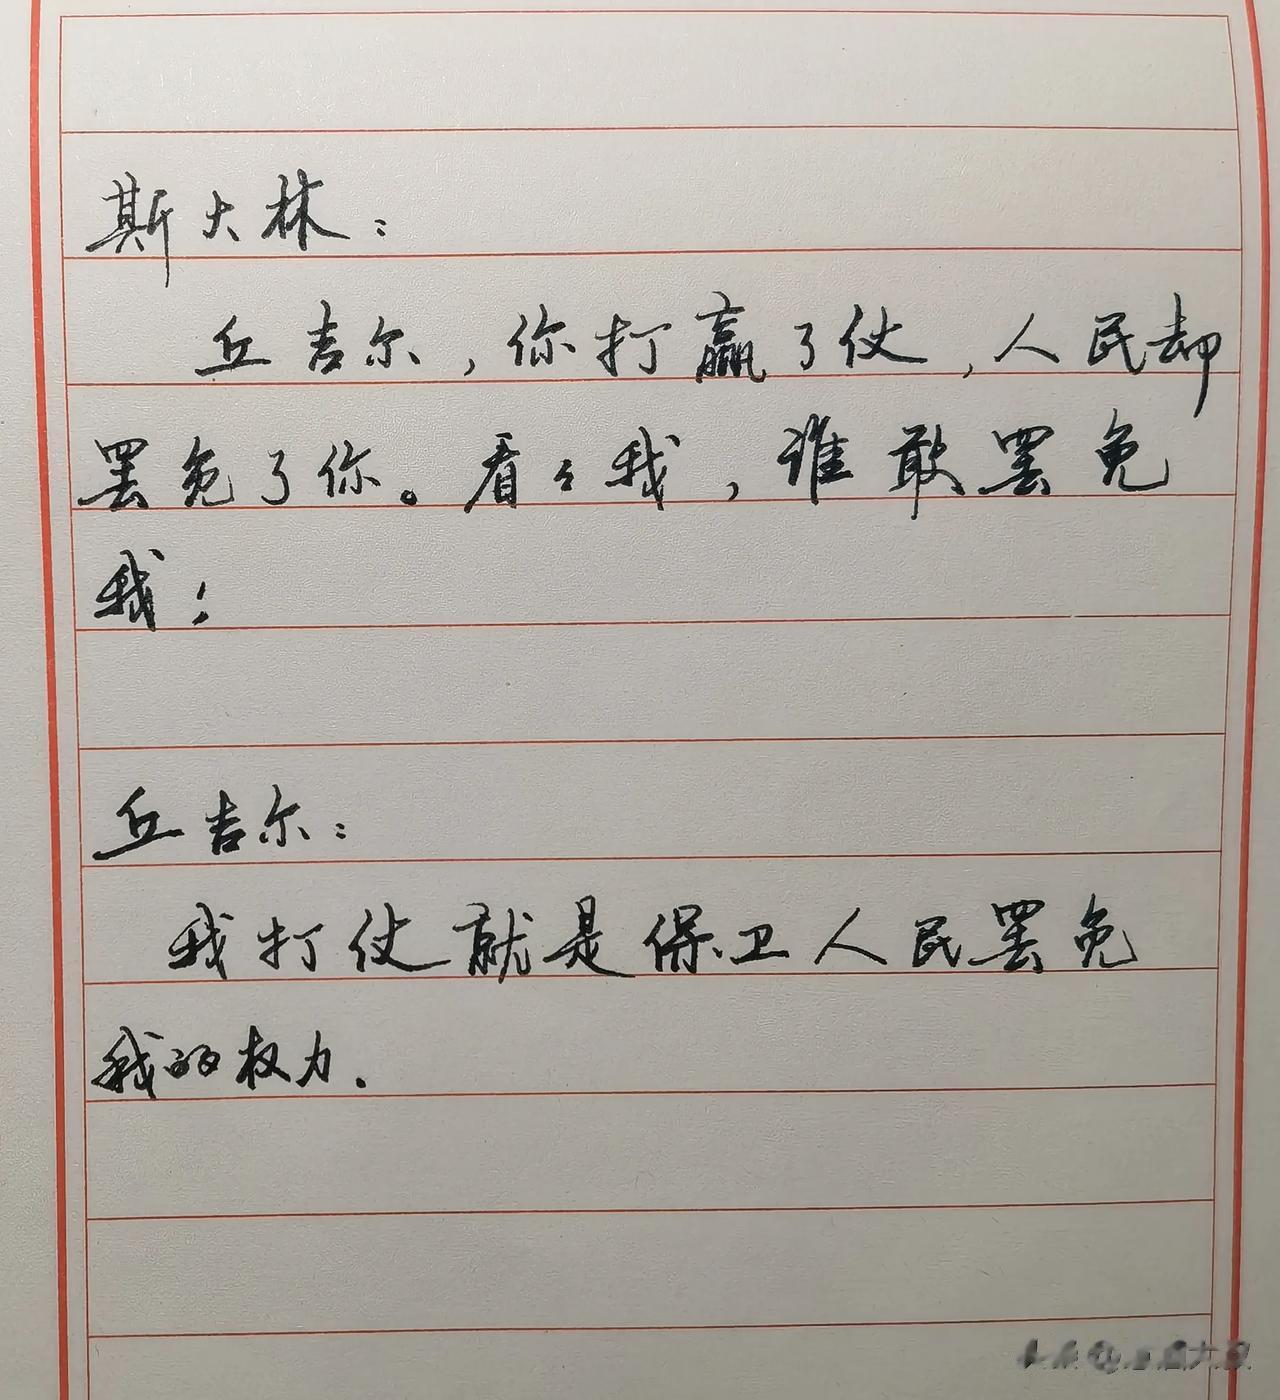 斯大林：
丘吉尔，你打赢了仗，人民却
罢免了你。看々我，谁敢罢免
我！
丘吉尔：
我打仗就是保卫人民罢免
我的权力.